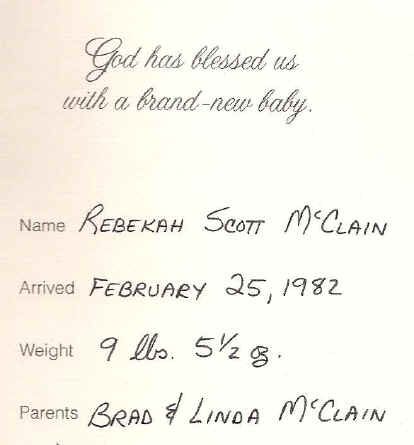 God has blessed us
with a brand-new baby.
Name Rebekah Scott McClain
Arrived February 25, 1982
Weight 9 lbs. 5 1/2 oz.
Parents Brad & Linda McClain